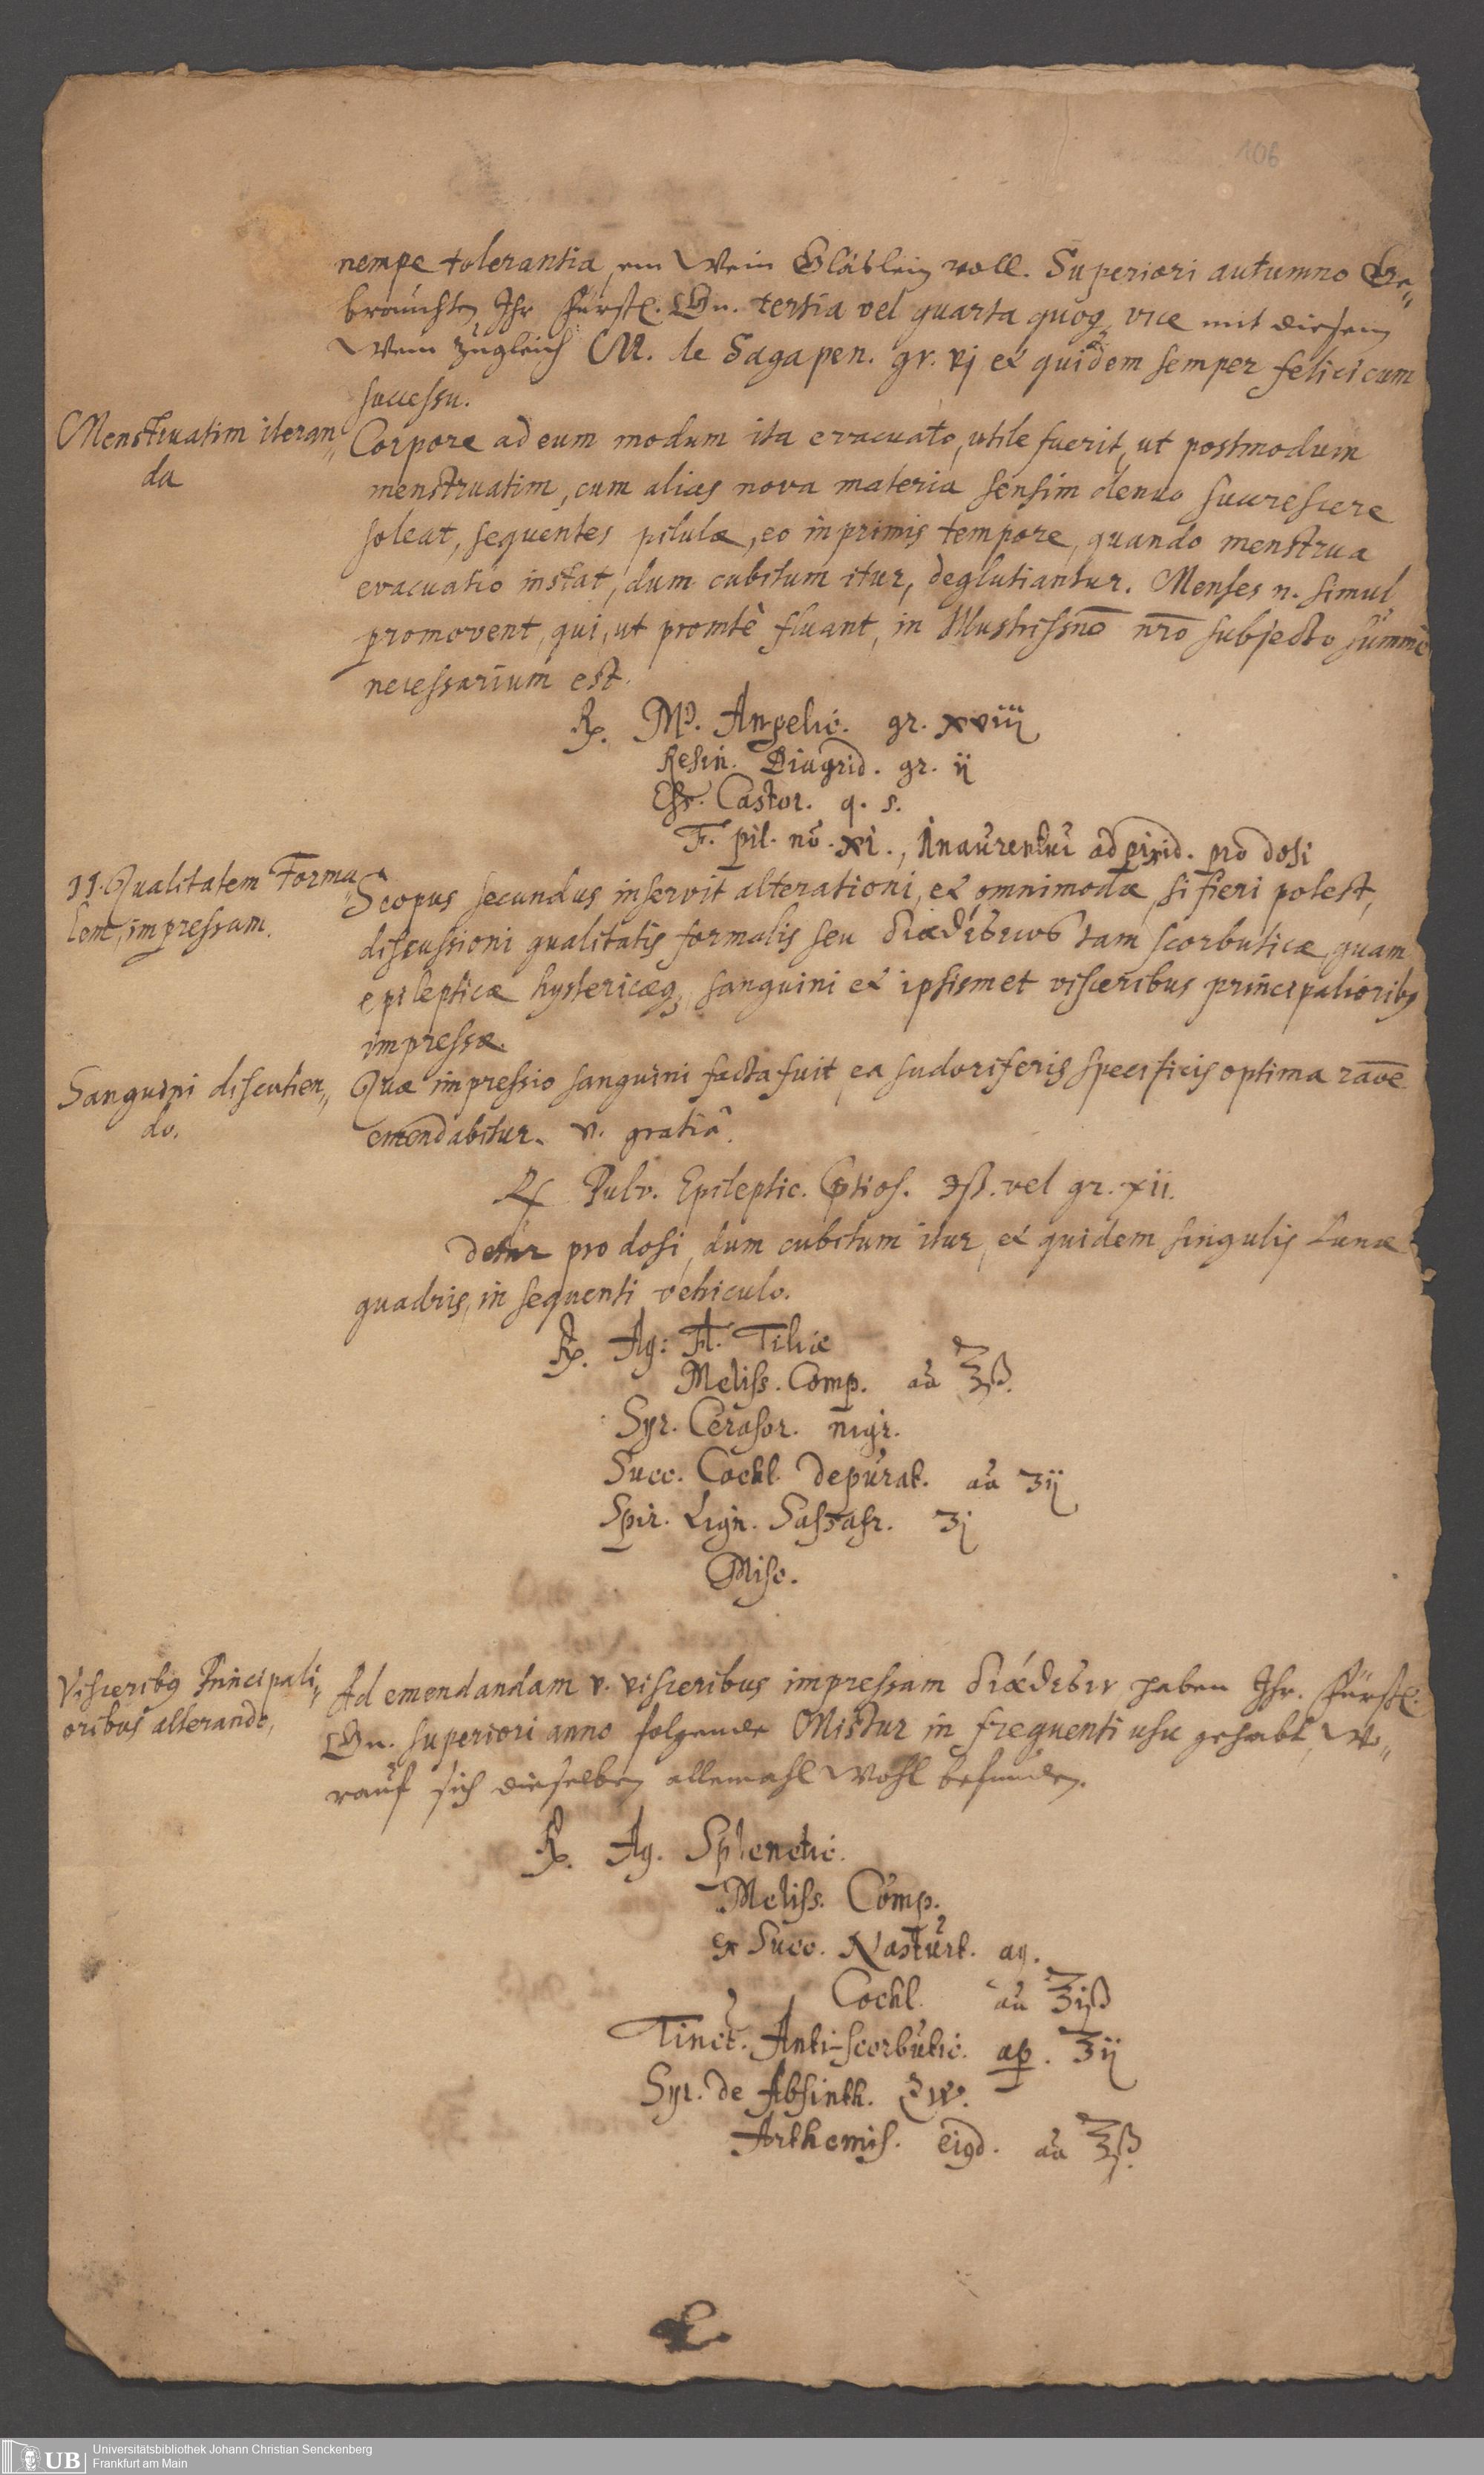 106
nempe tolerantia, ein Wein Gläslein voll. Superiori autumno Ge„
brauchten Ihr Fürstl. Gn. tertia vel quarta quoq, vice mit diesem
Wein zugleich M. de Sagapen. gr. vj et quidem semper felici cum
successu.
Menstruatim iteran„
da
Corpore ad eum modum ita evacuato, utile fuerit, ut postmodum
menstruatim, cum alias nova materia sensim denuo succrescere
soleat, sequentes pilulæ, eo inprimis tempore, quando menstrua
evacuatio instat, dum cubitum itur, deglutiantur. Menses n. simul
promovent, qui, ut promtè fluant, in Illustrissmō nrō subjecto summè
necessarium est.
℞. Mᵒ. Angelic. gr. xviij
Resin. Diagrid. gr. ij
Ess. Castor. q. s.
F. pil. nů. xi., Inaurentur ad pixid. pro dosi
II. Qualitatem Forma„
lem, impressam.
Scopus secundus inservit alterationi, et omnimodæ, si fieri potest,
discussioni qualitatis formalis seu διαθέσεως tam scorbuticæ, quam
epilepticæ hystericæq, sanguini et ipsismet visceribus principalioribꝫ
impressæ.
Sanguini discutien„
do.
Quæ impressio sanguini facta fuit, ea sudoriferis specificis optima raōe
emendabitur. v. gratiâ.
℞ Pulv. Epileptic. ℈ß. vel gr. xii.
Detur pro dosi, dum cubitum itur, et quidem singulis Lunæ
quadris, in sequenti vehiculo.
℞. Aq: Fl. Tiliæ
Meliss. Comp. aa ℥ß.
Syr. Cerasor. nigr.
Succ. Cochl. depurat. aa ʒij
Spir. Lign. Sassafr. ʒj
Misc.
Visceribꝫ Principali„
oribus alterando,
Ad emendandam v. visceribus impressam διάθεσιν haben Ihr. Fürstl.
Gn. superiori anno folgende Mixtur in frequenti usu gehabt, Wo„
rauf sich dieselben allemahl Wohl befunden.
℞. Aq. Splenetic.
Meliss. Comp.
ex Succ. Nasturt. aq.
Cochl. aa ℥iß
Tinct. Anti-scorbutic. ap. ʒij
Syr. de Absinth.
Arthemis. eiqd. aa ℥ß.
UB
Universitätsbibliothek Johann Christian Senckenberg
Frankfurt am Main